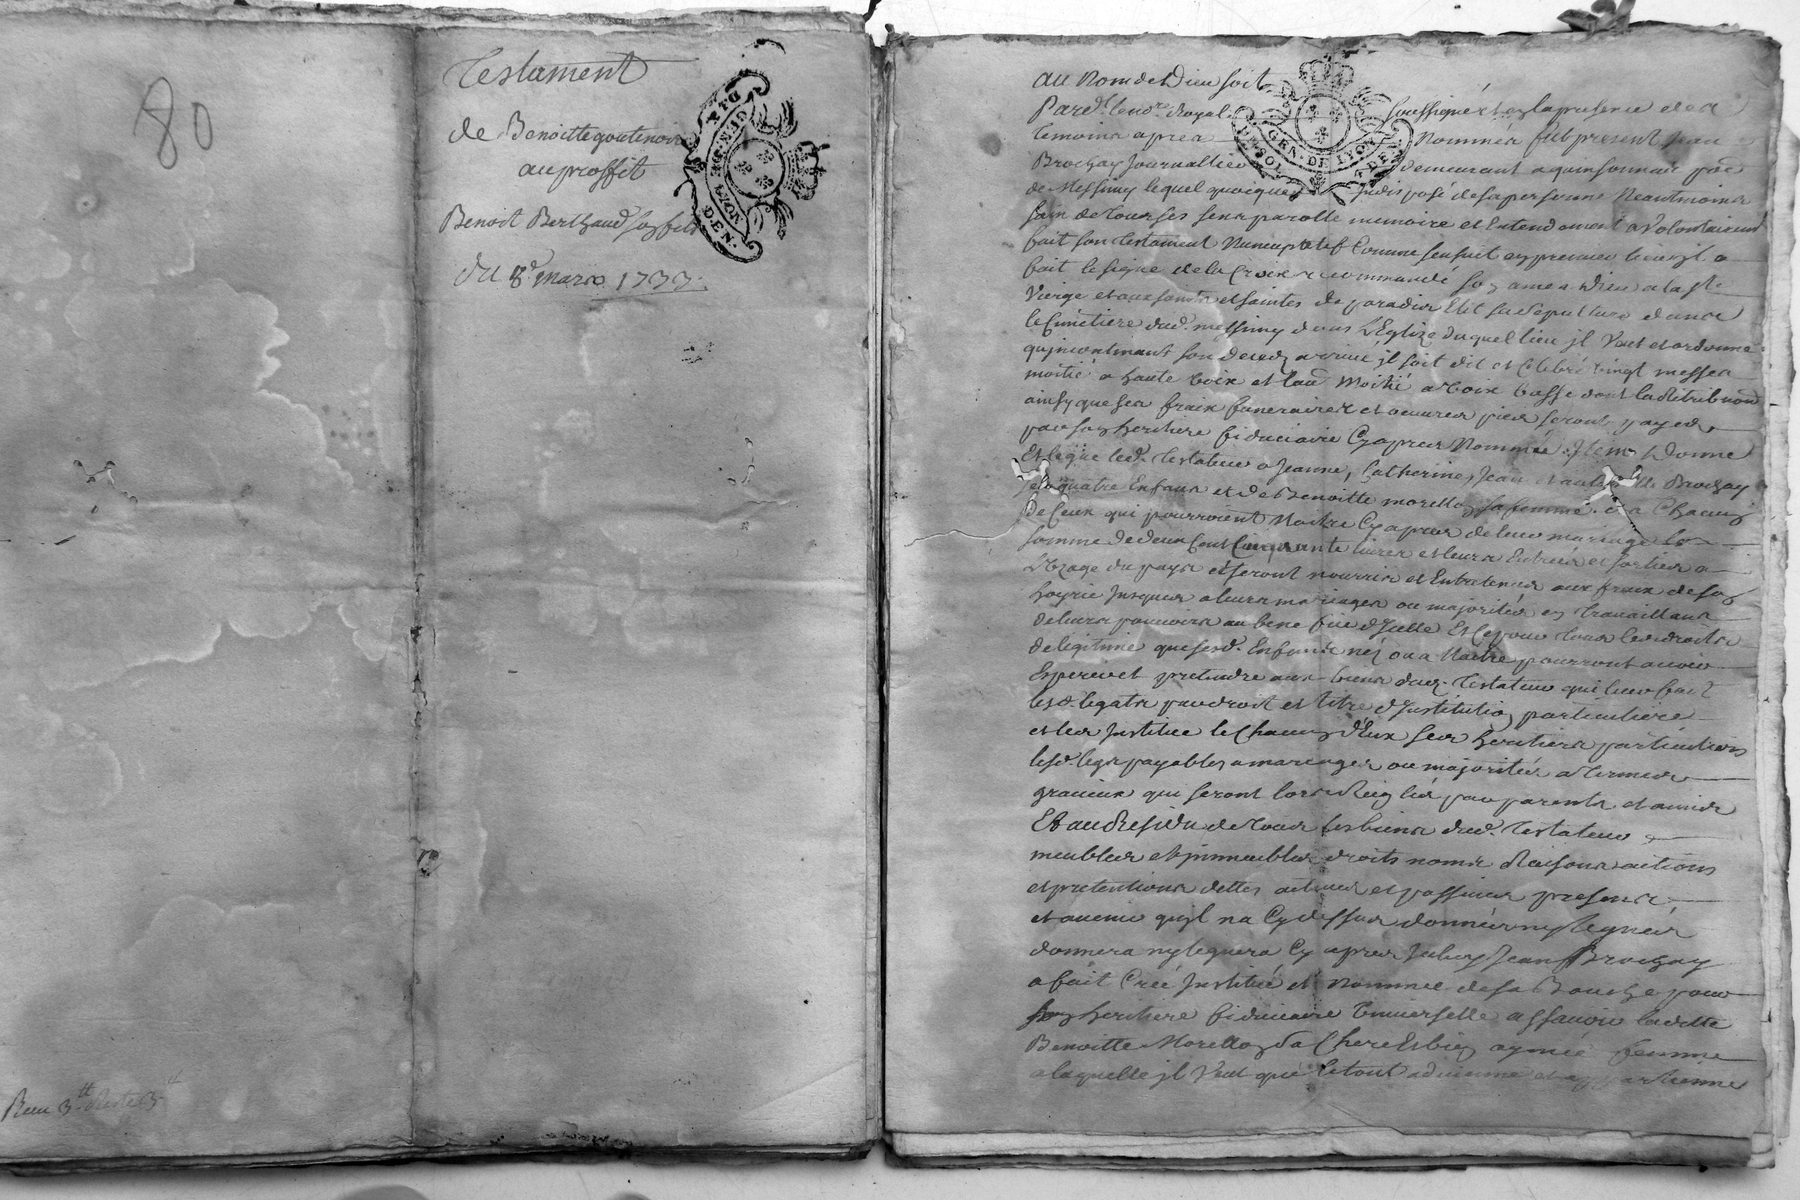 80
Testament
de Benoitte goutenoire
au proffit
Benoit Berthaud son fils
du 8e mars 1733.
GEN. DE LYON
DEN.
Receu 3tt Reste 3tt
au Nom de Dieu soit
Pard. le nore. Royal soussigné et en la presence des
temoins apres Nommés fut present Jean
Brochay Journallier demeurant a quinsonnas pse
de Messimy lequel quoique Indisposé de sa personne Neantmoins
sain de tous ses sens parolle memoire et Entendement a Volontairemt
fait son testament Nuncupatif Comme sensuit en premier lieu jl a
fait le signe de la Croix recommandé son ame a Dieu a la Ste
Vierge et aux saints et saintes de paradis Elit sa sepulture dans
le Cimetiere dud. messimy dans L'Eglize duquel lieu jl Veut et ordonne
qu'incontinant son decedz arrivé jl soit dit et Celebré vingt messes
moitié a haute voix et lau. Moitié a voix basse dont la Retribuon
ainsy que ses fraix funeraires et oeuvres pies seront payeds
par son heritiere fiduciaire Cy apres Nommée. Item Donne
Et legue led. testateur a Jeanne, Catherine, Jean et Brochay
ses quatre Enfans et de Benoitte morellon sa femme et a Chacun
de Ceux qui pourroient Naitre Cy apres de leur mariage la
somme de deux Cent Cinquante livres et leurs Entrées et sorties a
L'Uzage du pays et seront nourris et Entretenus aux fraix de son
hoyrie Jusques a leurs mariages ou majorités en travaillans
de leurs pouvoirs au benefice d'Icelle Et Ce pour tous les droits
de legitime que sesd. Enfans nez ou a Naitre pourront avoir
Esperer et pretendre aux biens dud. testateur qui leur fait
lesd. legats par droit et titre d'Institution particuliere
et les Institue le Chacun d'Eux ses heritiers particuliers
lesd. legs payables a mariages ou majorités a termes
gracieux qui seront lors Reiglés par parents et amis
Et au Residu de tous les biens dud. testateur
meubles et jmmeubles droits noms Raisons actions
et pretentions dettes actives et passives presens
et avenir qu'jl na Cy dessus donnés ny legués
donnera ny leguera Cy apres Jceluy Jean Brochay
a fait Créé Institué et Nommée de sa Bouche pour
son heritiere fiduciaire Universelle a ssavoir laditte
Benoitte Morellon sa Chere Et bien aymée femme
a laquelle jl Veut que le tout advienne et appartienne